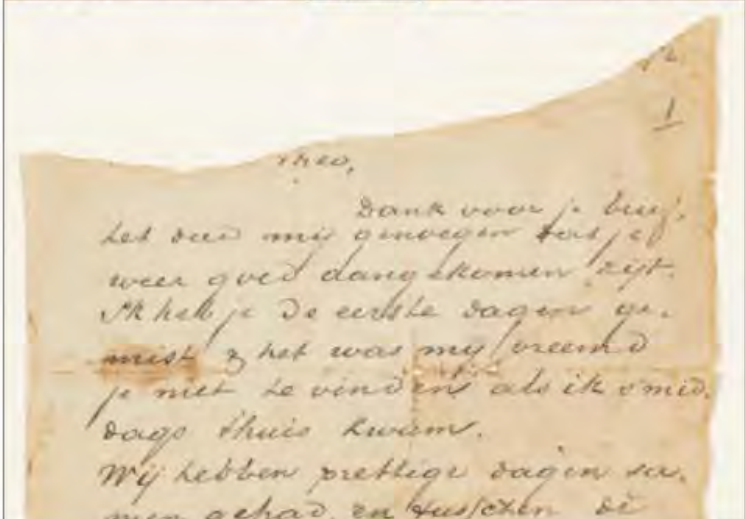 1
Theo,
Dank voor je brief,
het deed mij genoegen dat je
weer goed aangekomen zijt.
Ik heb je de eerste dagen ge-
mist & het was mij vreemd
je niet te vinden als ik smid-
dags thuis kwam.
Wij hebben prettige dagen sa-
men gehad, en tusschen de